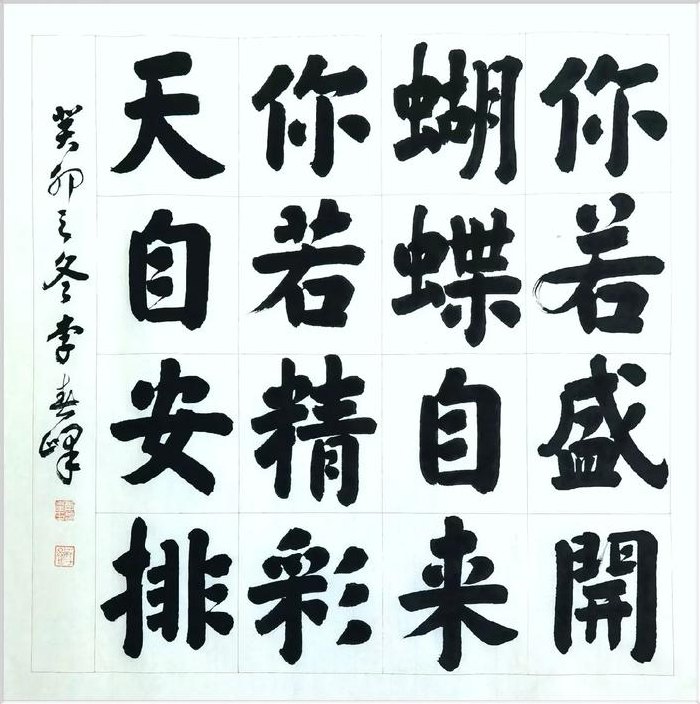 你若盛開
蝴蝶自来
你若精彩
天自安排
癸卯之冬李春峰